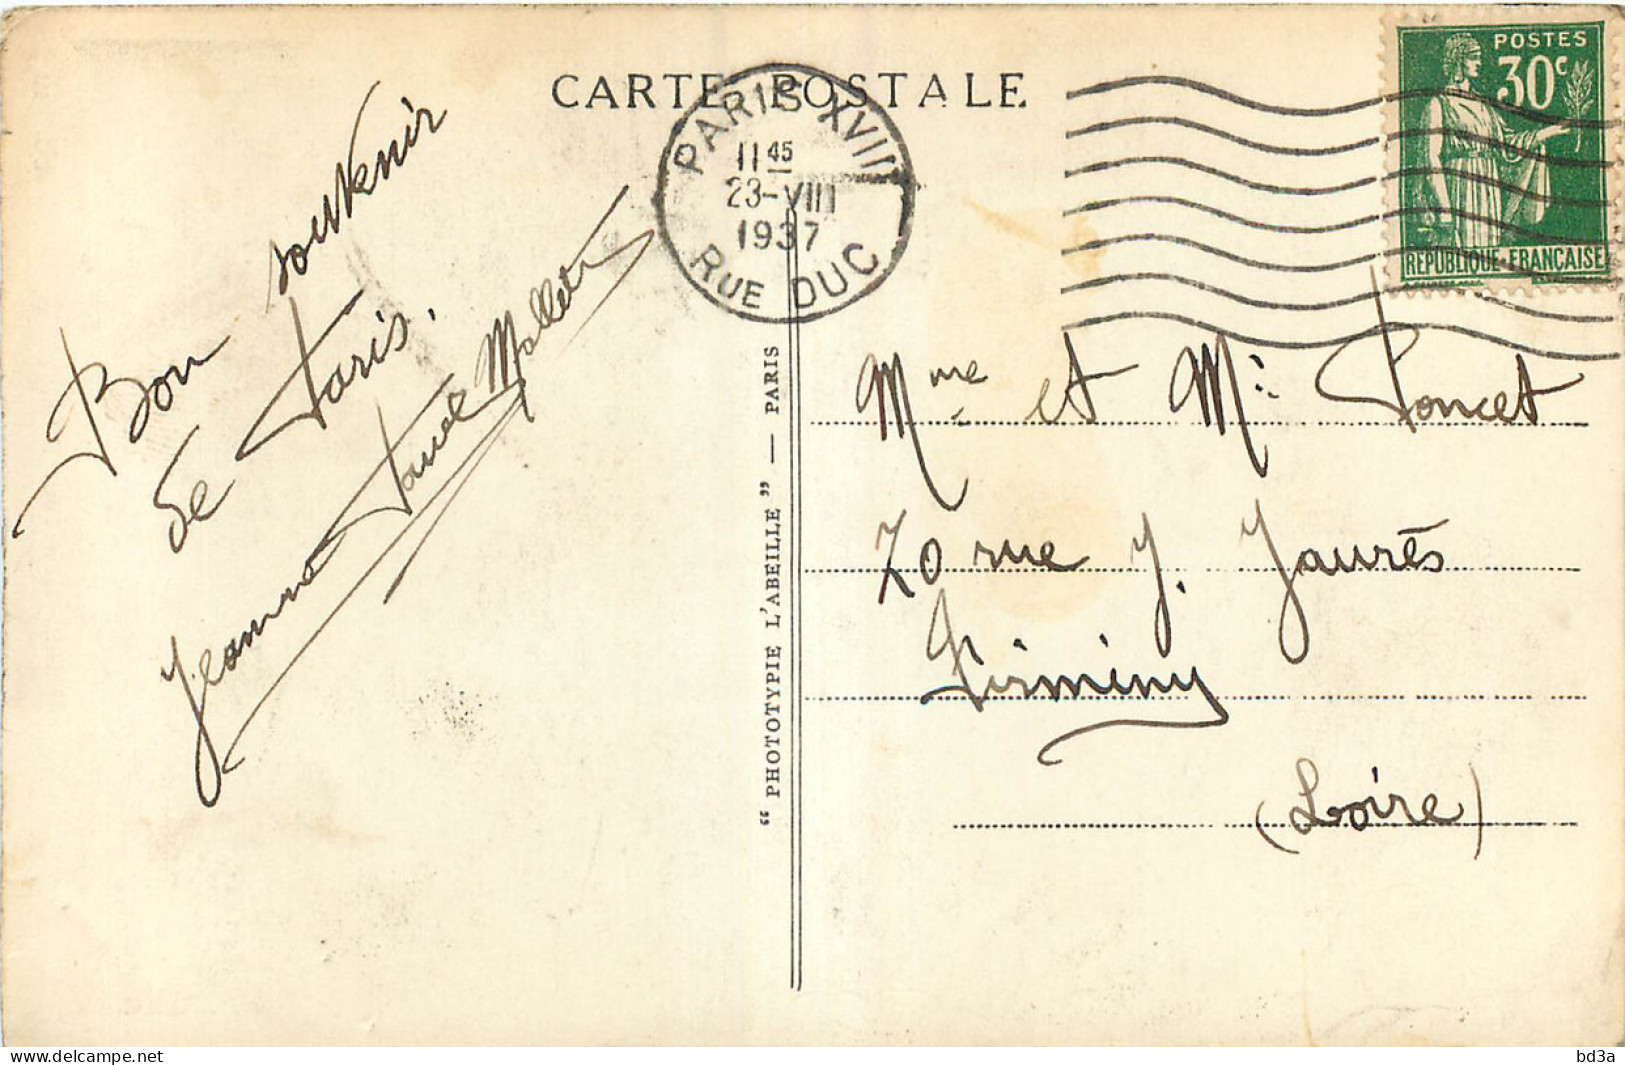 CARTE POSTALE
PARIS XVIII
11 45
23-VIII
1937
RUE DUC
POSTES
30c
REPUBLIQUE FRANÇAISE
Bon souvenir
de Paris.
Jeanne Mallet
Mme et Mr Poncet
70 rue J. Jaurès
Firminy
(Loire)
“ PHOTOTYPIE L'ABEILLE ” — PARIS
https://www.delcampe.net
bd3a